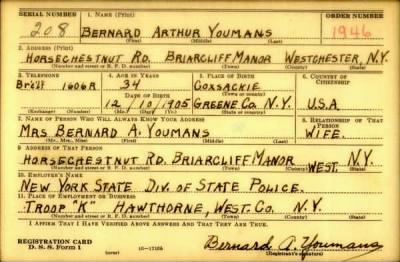 SERIAL NUMBER 1. NAME (Print) ORDER NUMBER
208 BERNARD ARTHUR YOUMANS 1946
(First) (Middle) (Last)
2. ADDRESS (Print)
HORSECHESTNUT RD. BRIARCLIFF MANOR WESTCHESTER, N.Y.
(Number and street or R. F. D. number) (Town) (County) (State)
3. TELEPHONE 4. AGE IN YEARS 5. PLACE OF BIRTH 6. COUNTRY OF CITIZENSHIP
1606R 34 COXSACKIE
DATE OF BIRTH (Town or county)
12/10/1905 GREENE CO. N.Y. U.S.A.
(Exchange) (Number) (Mo.) (Day) (Yr.) (State or country)
7. NAME OF PERSON WHO WILL ALWAYS KNOW YOUR ADDRESS 8. RELATIONSHIP OF THAT PERSON
MRS BERNARD A. YOUMANS WIFE.
(Mr., Mrs., Miss) (First) (Middle) (Last)
9. ADDRESS OF THAT PERSON
HORSECHESTNUT RD. BRIARCLIFF MANOR WEST. N.Y.
(Number and street or R. F. D. number) (Town) (County) (State)
10. EMPLOYER'S NAME
NEW YORK STATE DIV. OF STATE POLICE.
11. PLACE OF EMPLOYMENT OR BUSINESS
TROOP "K" HAWTHORNE, WEST. CO. N.Y.
(Number and street or R. F. D. number) (Town) (County) (State)
I AFFIRM THAT I HAVE VERIFIED ABOVE ANSWERS AND THAT THEY ARE TRUE.
REGISTRATION CARD
D. S. S. Form 1 (over) Bernard A. Youmans
(Registrant's signature)